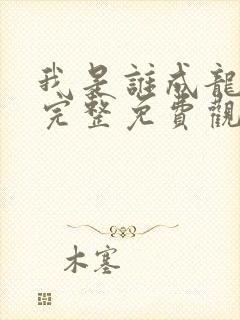 我是誰成龍
完整免費觀
木塞